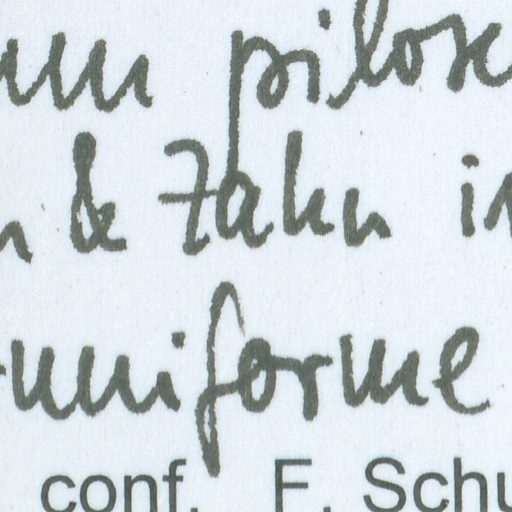 pilos
& Zahn in
uniforme
conf. F. Schu